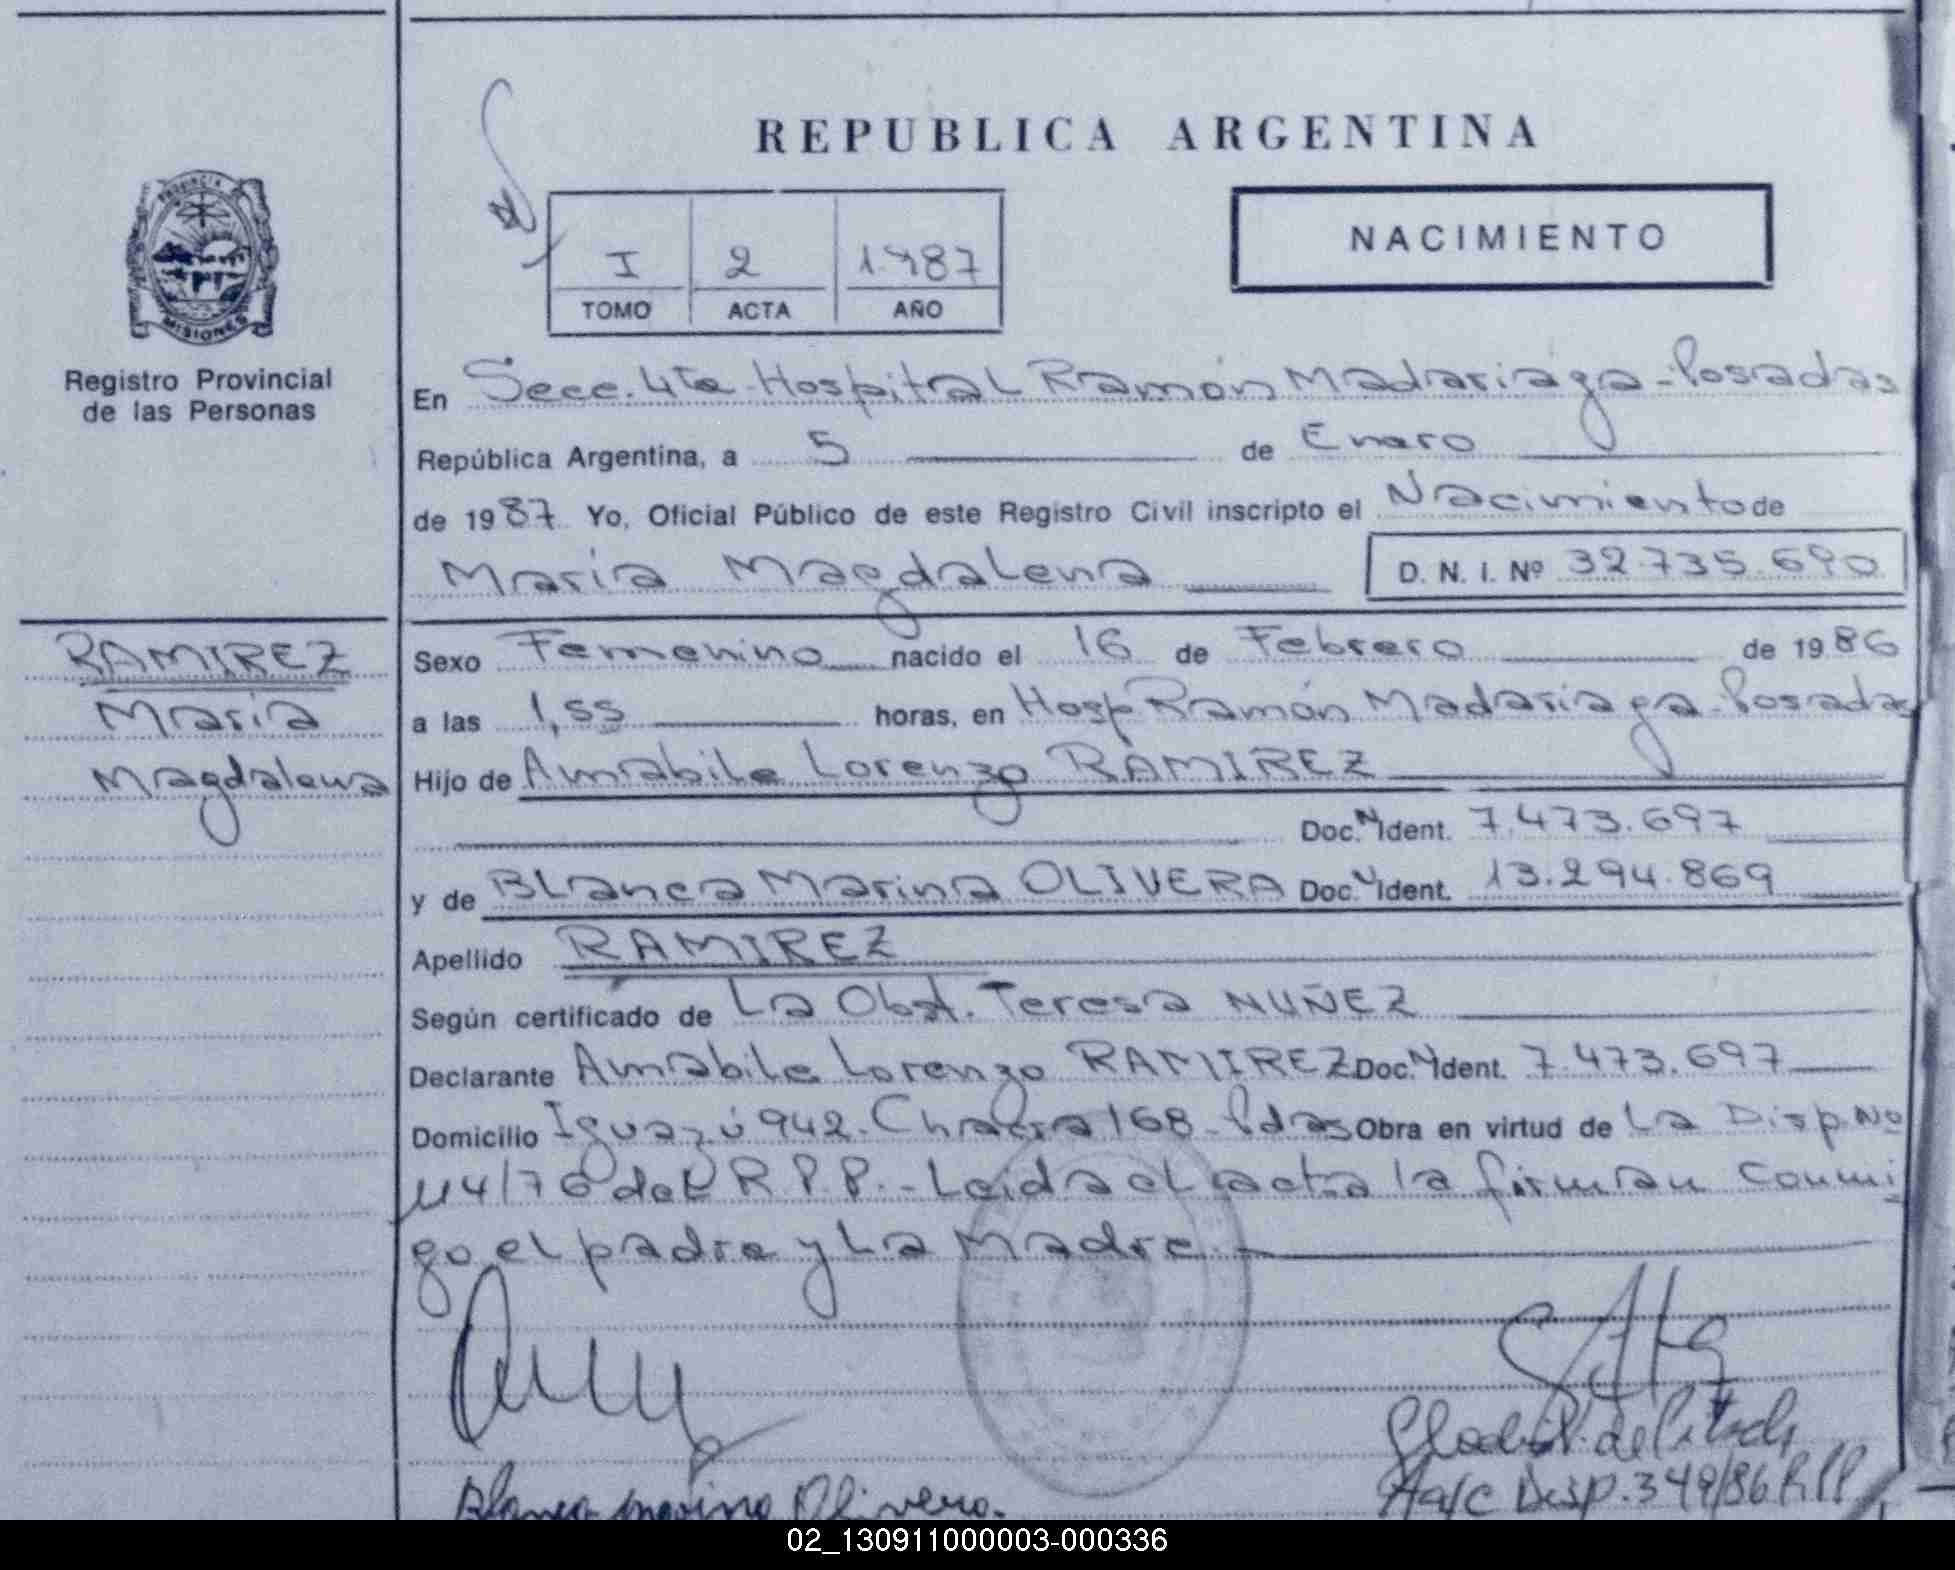 REPUBLICA ARGENTINA
PROVINCIA
MISIONES
Registro Provincial
de las Personas
I 2 1.987
TOMO ACTA AÑO
NACIMIENTO
En Secc. 4ta Hospital Ramón Madariaga - Posadas
República Argentina, a 5 de Enero
de 1987 Yo, Oficial Público de este Registro Civil inscripto el Nacimiento de
Maria Magdalena D. N. I. Nº 32.735.690
RAMIREZ
Maria
Magdalena
Sexo Femenino nacido el 16 de Febrero de 1986
a las 1,55 horas, en Hosp Ramón Madariaga - Posadas
Hijo de Amabile Lorenzo RAMIREZ
Doc. N Ident. 7.473.697
y de Blanca Marina OLIVERA Doc. N Ident. 13.294.869
Apellido RAMIREZ
Según certificado de La Obst. Teresa NUÑEZ
Declarante Amabile Lorenzo RAMIREZ Doc. N Ident. 7.473.697
Domicilio Iguazú 942 - Chacra 168 - Pdas Obra en virtud de La Disp. Nº
114/76 del R.P.P. - Leida el acta la firman conmi
go el padre y La Madre. -
Blanca marina Olivera.
A/C Disp. 349/86 R.P.P
02_130911000003-000336